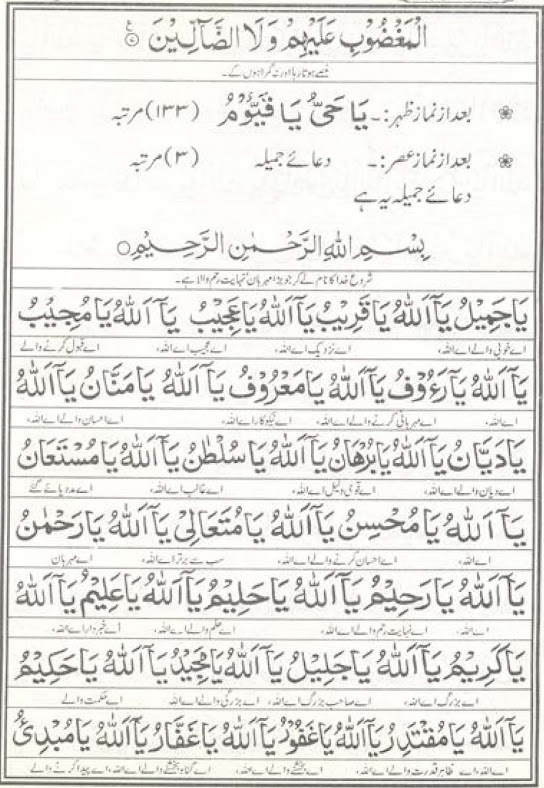 الْمَغْضُوبِ عَلَيْهِمْ وَلَا الضَّآلِّينَ
غصے ہوتا رہا اور نہ گمراہوں کے۔
بعد از نماز ظہر:۔ يَا حَيُّ يَا قَيُّوْمُ (۱۳۳) مرتبہ
بعد از نماز عصر:۔ دعائے جمیلہ (۳) مرتبہ
دعائے جمیلہ یہ ہے
بِسْمِ اللهِ الرَّحْمٰنِ الرَّحِيْمِ
شروع خدا کا نام لے کر جو بڑا مہربان نہایت رحم والا ہے۔
يَا جَمِيْلُ يَآ اَللهُ يَا قَرِيْبُ يَآ اَللهُ يَا عَجِيْبُ يَآ اَللهُ يَا مُجِيْبُ
اے خوبی والے اے اللہ، اے نزدیک اے اللہ، اے عجیب اے اللہ، اے قبول کرنے والے
يَآ اَللهُ يَا رَءُوْفُ يَآ اَللهُ يَا مَعْرُوْفُ يَآ اَللهُ يَا مَنَّانُ يَآ اَللهُ
اے اللہ، اے مہربانی کرنے والے اے اللہ، اے نیکوکار اے اللہ، اے احسان والے اے اللہ،
يَا دَيَّانُ يَآ اَللهُ يَا بُرْهَانُ يَآ اَللهُ يَا سُلْطٰنُ يَآ اَللهُ يَا مُسْتَعَانُ
اے دیان والے اے اللہ، اے قوی دلیل اے اللہ، اے غالب اے اللہ، اے مدد پائے گئے
يَآ اَللهُ يَا مُحْسِنُ يَآ اَللهُ يَا مُتَعَالِيْ يَآ اَللهُ يَا رَحْمٰنُ
اے اللہ، اے احسان کرنے والے اے اللہ، سب سے برتر اے اللہ، اے مہربان
يَآ اَللهُ يَا رَحِيْمُ يَآ اَللهُ يَا حَلِيْمُ يَآ اَللهُ يَا عَلِيْمُ يَآ اَللهُ
اے اللہ، اے نہایت رحم والے اے اللہ، اے حلم والے اے اللہ، اے خبردار اے اللہ،
يَا كَرِيْمُ يَآ اَللهُ يَا جَلِيْلُ يَآ اَللهُ يَا مَجِيْدُ يَآ اَللهُ يَا حَكِيْمُ
اے بزرگ اے اللہ، اے صاحب بزرگ اے اللہ، اے بزرگی والے اے اللہ اے حکمت والے
يَآ اَللهُ يَا مُقْتَدِرُ يَآ اَللهُ يَا غَفُوْرُ يَآ اَللهُ يَا غَفَّارُ يَآ اَللهُ يَا مُبْدِئُ
اے اللہ، اے ظاہر قدرت والے اے اللہ، اے بخشنے والے اے اللہ، اے گناہ بخشنے والے اے اللہ، اے پیدا کرنے والے